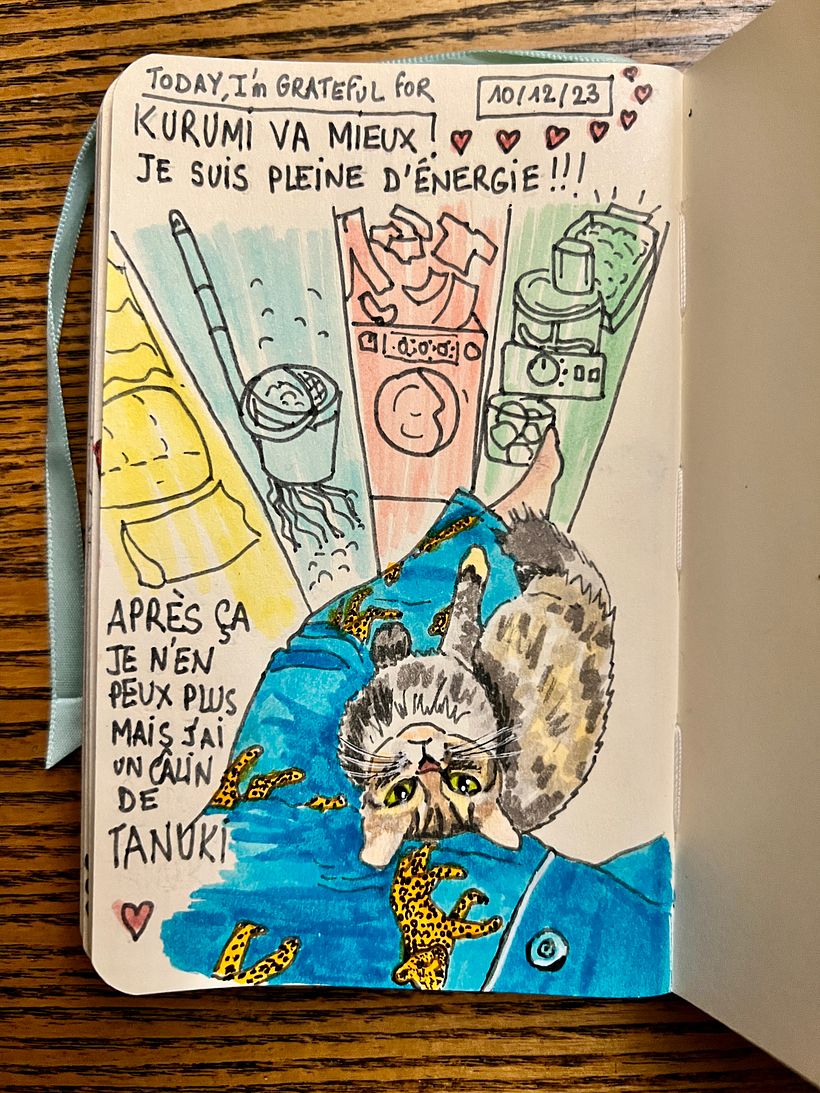 TODAY, I'm GRATEFUL FOR
10/12/23
KURUMI VA MIEUX!
JE SUIS PLEINE D'ÉNERGIE!!!
APRÈS ÇA
JE N'EN
PEUX PLUS
MAIS J'AI
UN CÂLIN
DE
TANUKI